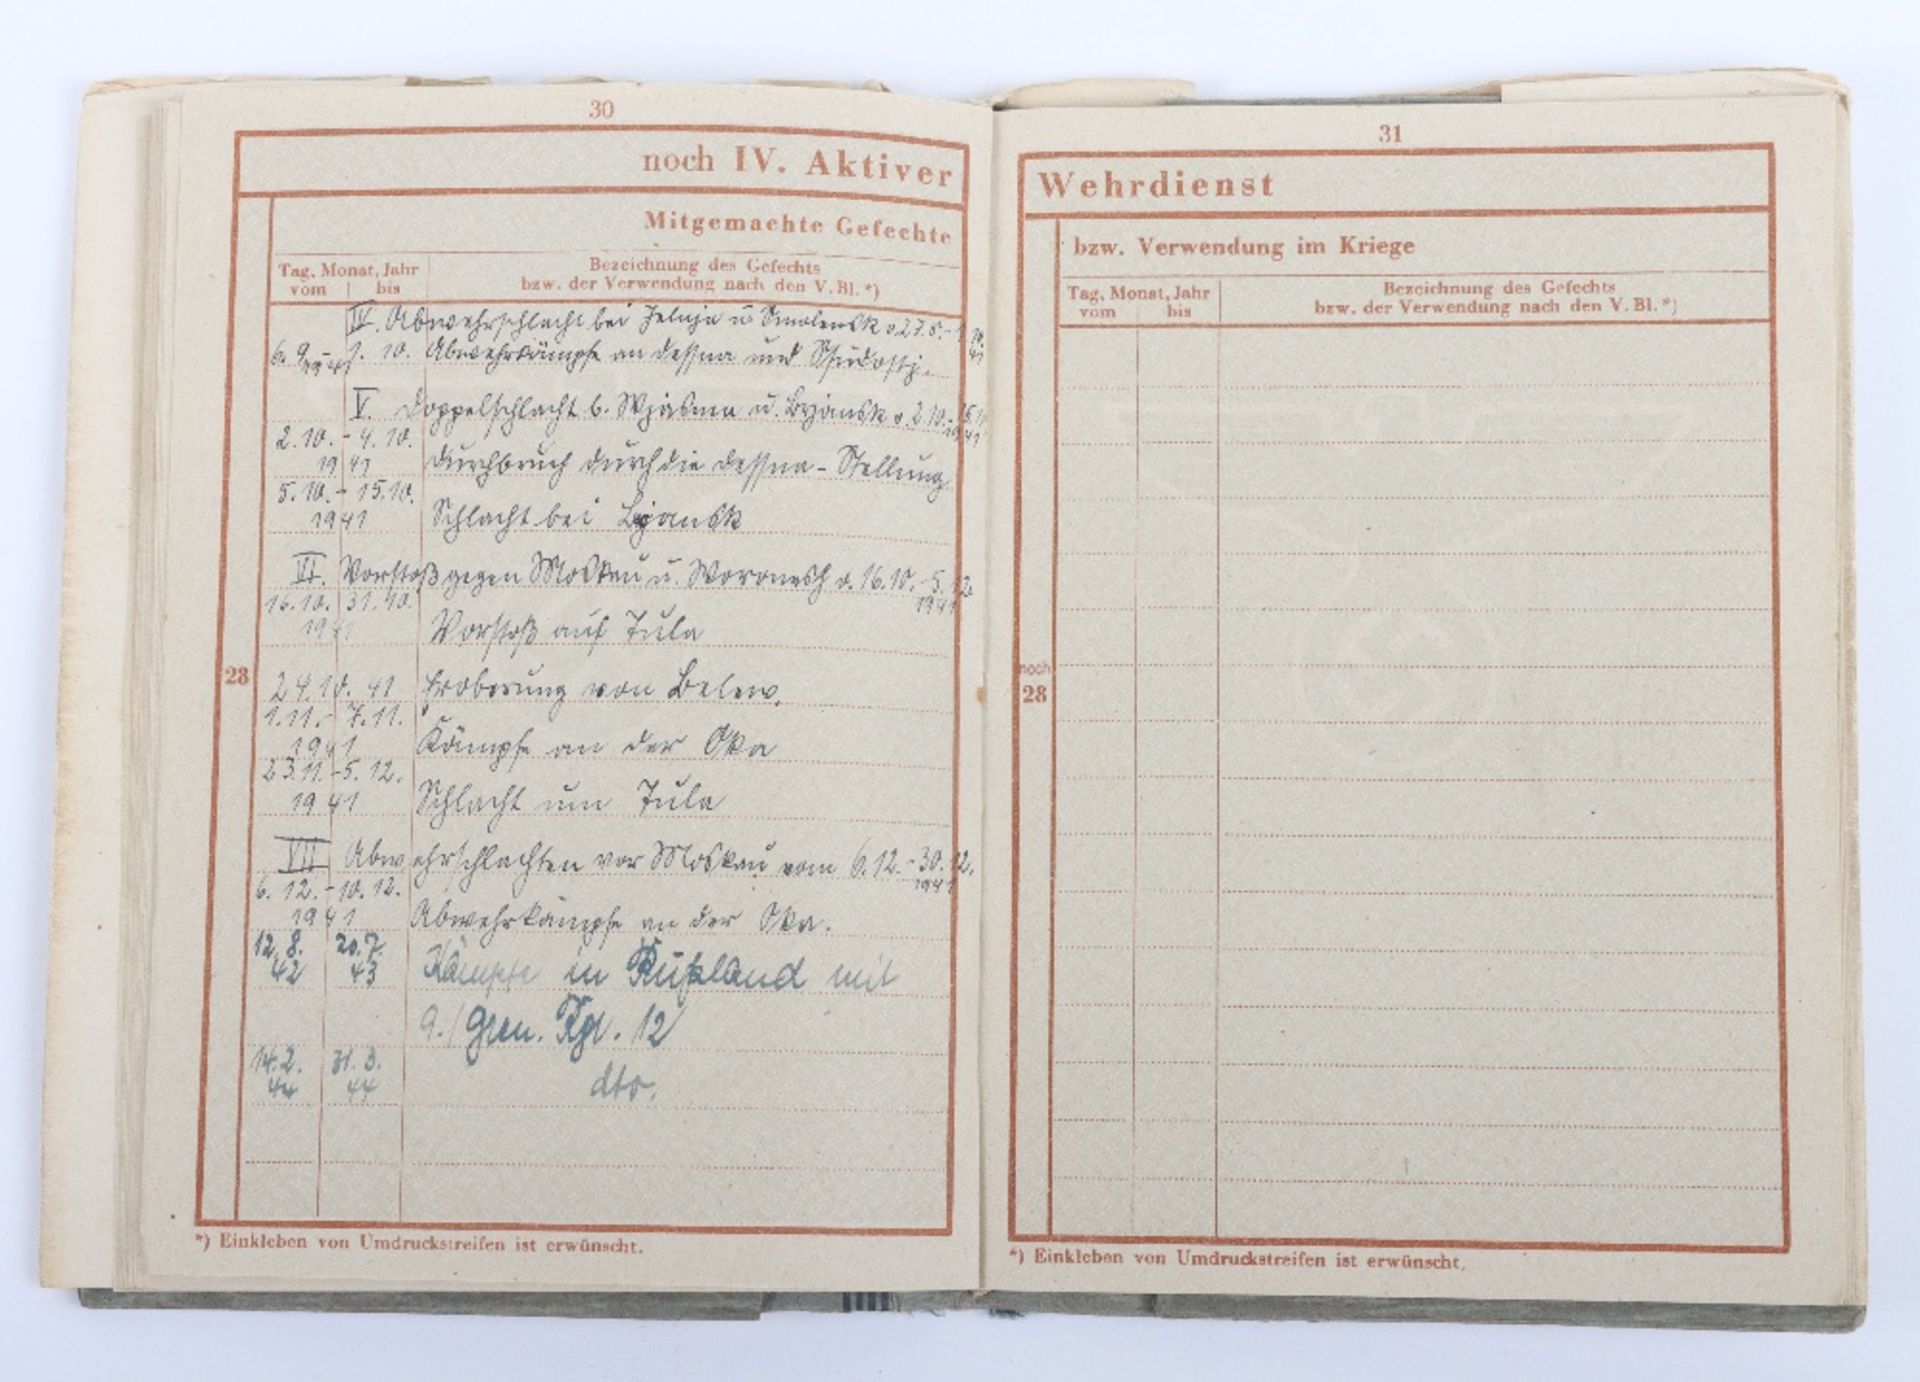 30
noch IV. Aktiver
Mitgemachte Gefechte
Tag, Monat, Jahr
vom bis
Bezeichnung des Gefechts
bzw. der Verwendung nach den V. Bl. *)
IV. Abwehrschlacht bei Jelnja u. Smolensk v. 27.8. - 1.10. 41
6. 9. 1. 10. Abwehrkämpfe an Dessna und Ssudostj.
V. Doppelschlacht b. Wjasma u. Brjansk v. 2.10. - 15.10. 1941
2.10. - 4.10.
1941 Durchbruch durch die Dessna - Stellung
5.10. - 15.10.
1941 Schlacht bei Brjansk
VI. Vorstoß gegen Moskau u. Woronesh v. 16.10. - 5.12. 1941
16.10. 31.10.
1941 Vorstoß auf Tula
28
24.10. 41 Eroberung von Belew.
1.11. - 7.11.
1941 Kämpfe an der Oka
23.11. - 5.12.
1941 Schlacht um Tula
VII Abwehrschlachten vor Moskau vom 6.12. - 30.12. 1941
6.12. - 10.12.
1941 Abwehrkämpfe an der Oka.
12.8. 42 20.7. 43 Kämpfe in Rußland mit
9./Gren. Rgt. 12
14.2. 44 31.3. 44 dto.
*) Einkleben von Umdruckstreifen ist erwünscht.
31
Wehrdienst
bzw. Verwendung im Kriege
Tag, Monat, Jahr
vom bis
Bezeichnung des Gefechts
bzw. der Verwendung nach den V. Bl. *)
noch
28
*) Einkleben von Umdruckstreifen ist erwünscht.